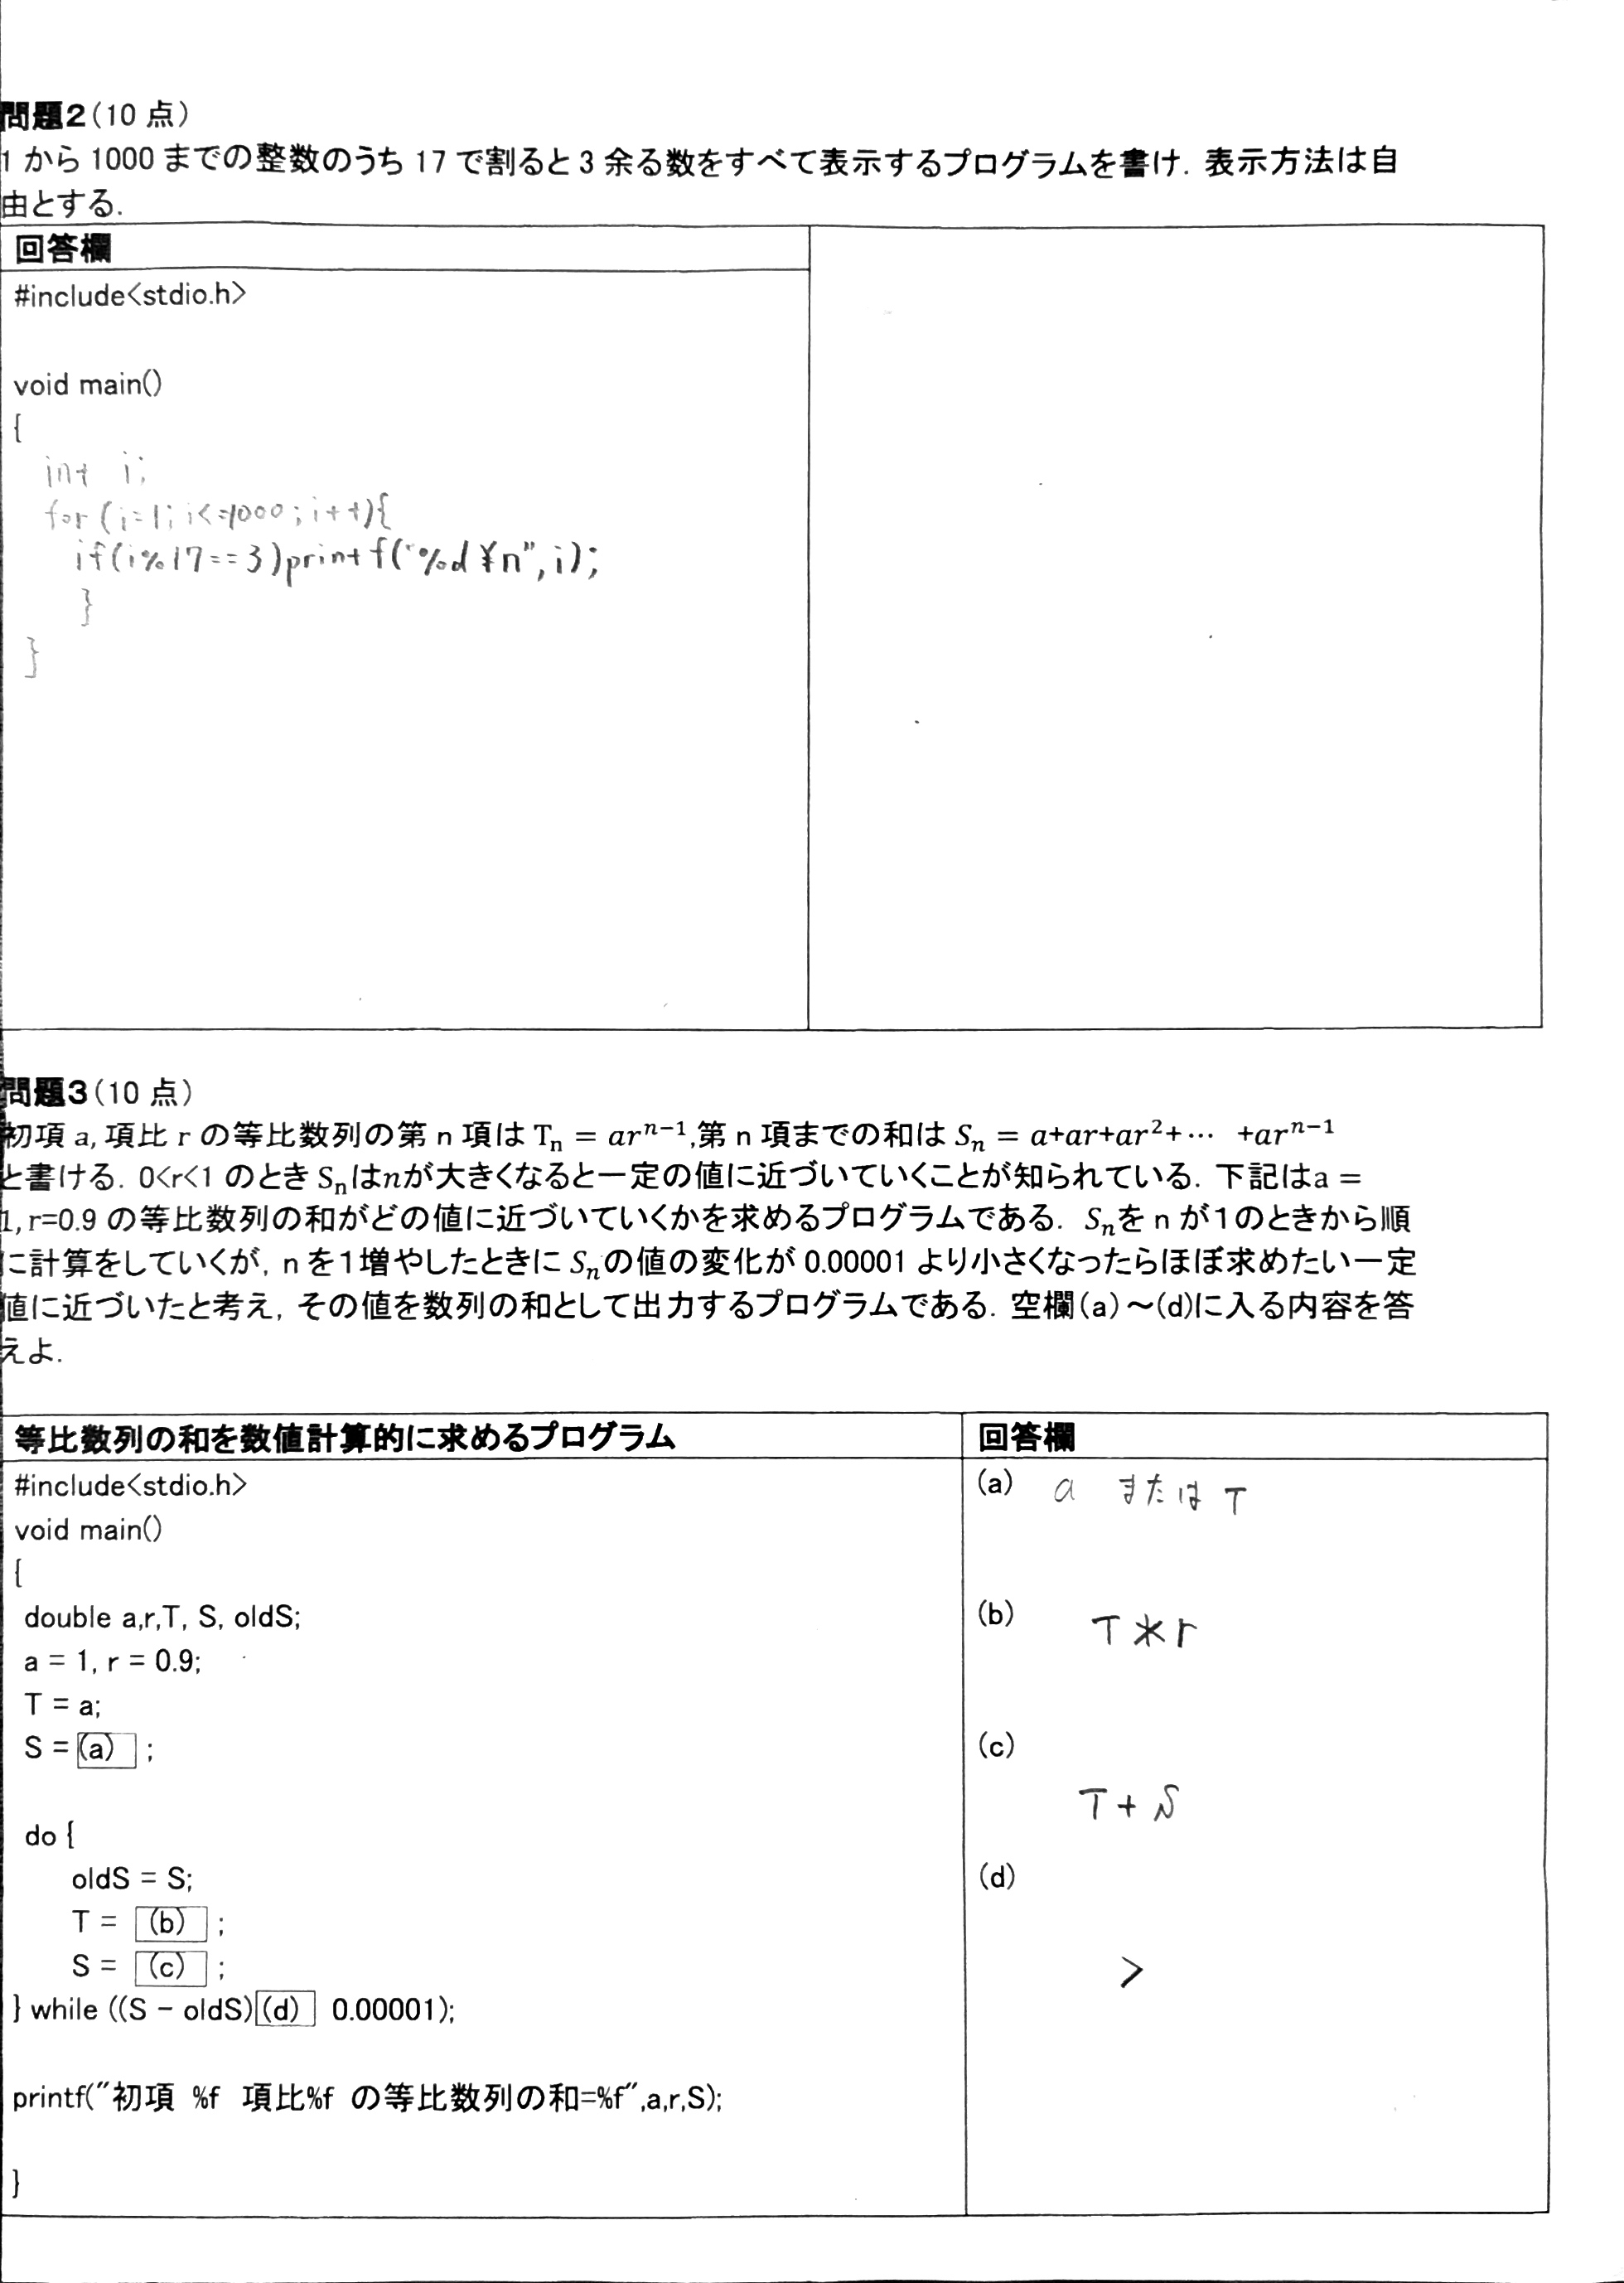 問題2(10 点)
1 から 1000 までの整数のうち 17 で割ると 3 余る数をすべて表示するプログラムを書け. 表示方法は自
由とする.
回答欄
#include<stdio.h>
void main()
{
int i;
for (i=1; i<=1000; i++){
if(i%17==3)printf("%d¥n",i);
}
}
問題3(10 点)
初項 a, 項比 r の等比数列の第 n 項は Tₙ = arⁿ⁻¹,第 n 項までの和は Sₙ = a+ar+ar²+⋯ +arⁿ⁻¹
と書ける. 0<r<1 のとき Sₙはnが大きくなると一定の値に近づいていくことが知られている. 下記はa =
1, r=0.9 の等比数列の和がどの値に近づいていくかを求めるプログラムである. Sₙを n が1のときから順
に計算をしていくが, n を1増やしたときに Sₙの値の変化が 0.00001 より小さくなったらほぼ求めたい一定
値に近づいたと考え, その値を数列の和として出力するプログラムである. 空欄(a)～(d)に入る内容を答
えよ.
等比数列の和を数値計算的に求めるプログラム
#include<stdio.h>
void main()
{
double a,r,T, S, oldS;
a = 1, r = 0.9;
T = a;
S = (a) ;
do {
oldS = S;
T = (b) ;
S = (c) ;
} while ((S - oldS) (d) 0.00001);
printf("初項 %f 項比%f の等比数列の和=%f",a,r,S);
}
回答欄
(a) a または T
(b) T*r
(c)
T+S
(d)
>